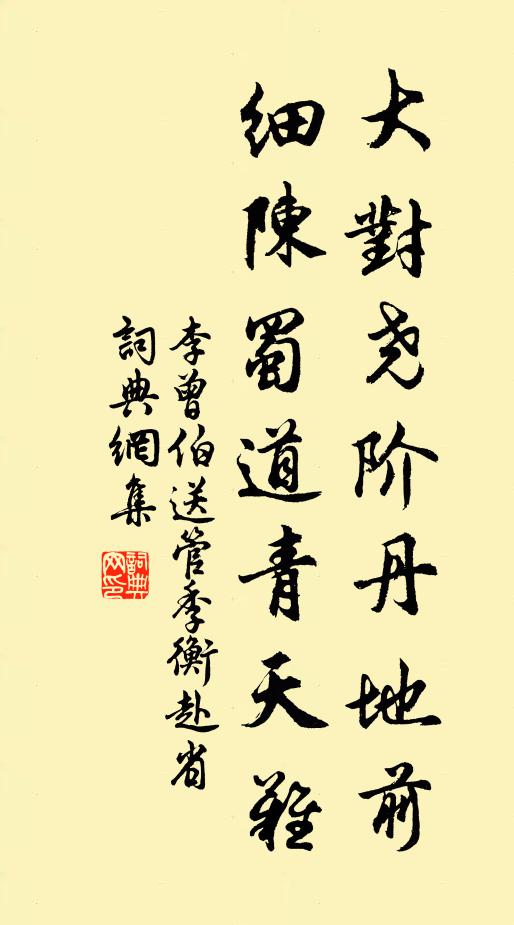 大對尧阶丹地前
細陳蜀道青天難
李曾伯送管季衡赴省
詞典網集
詞典網印